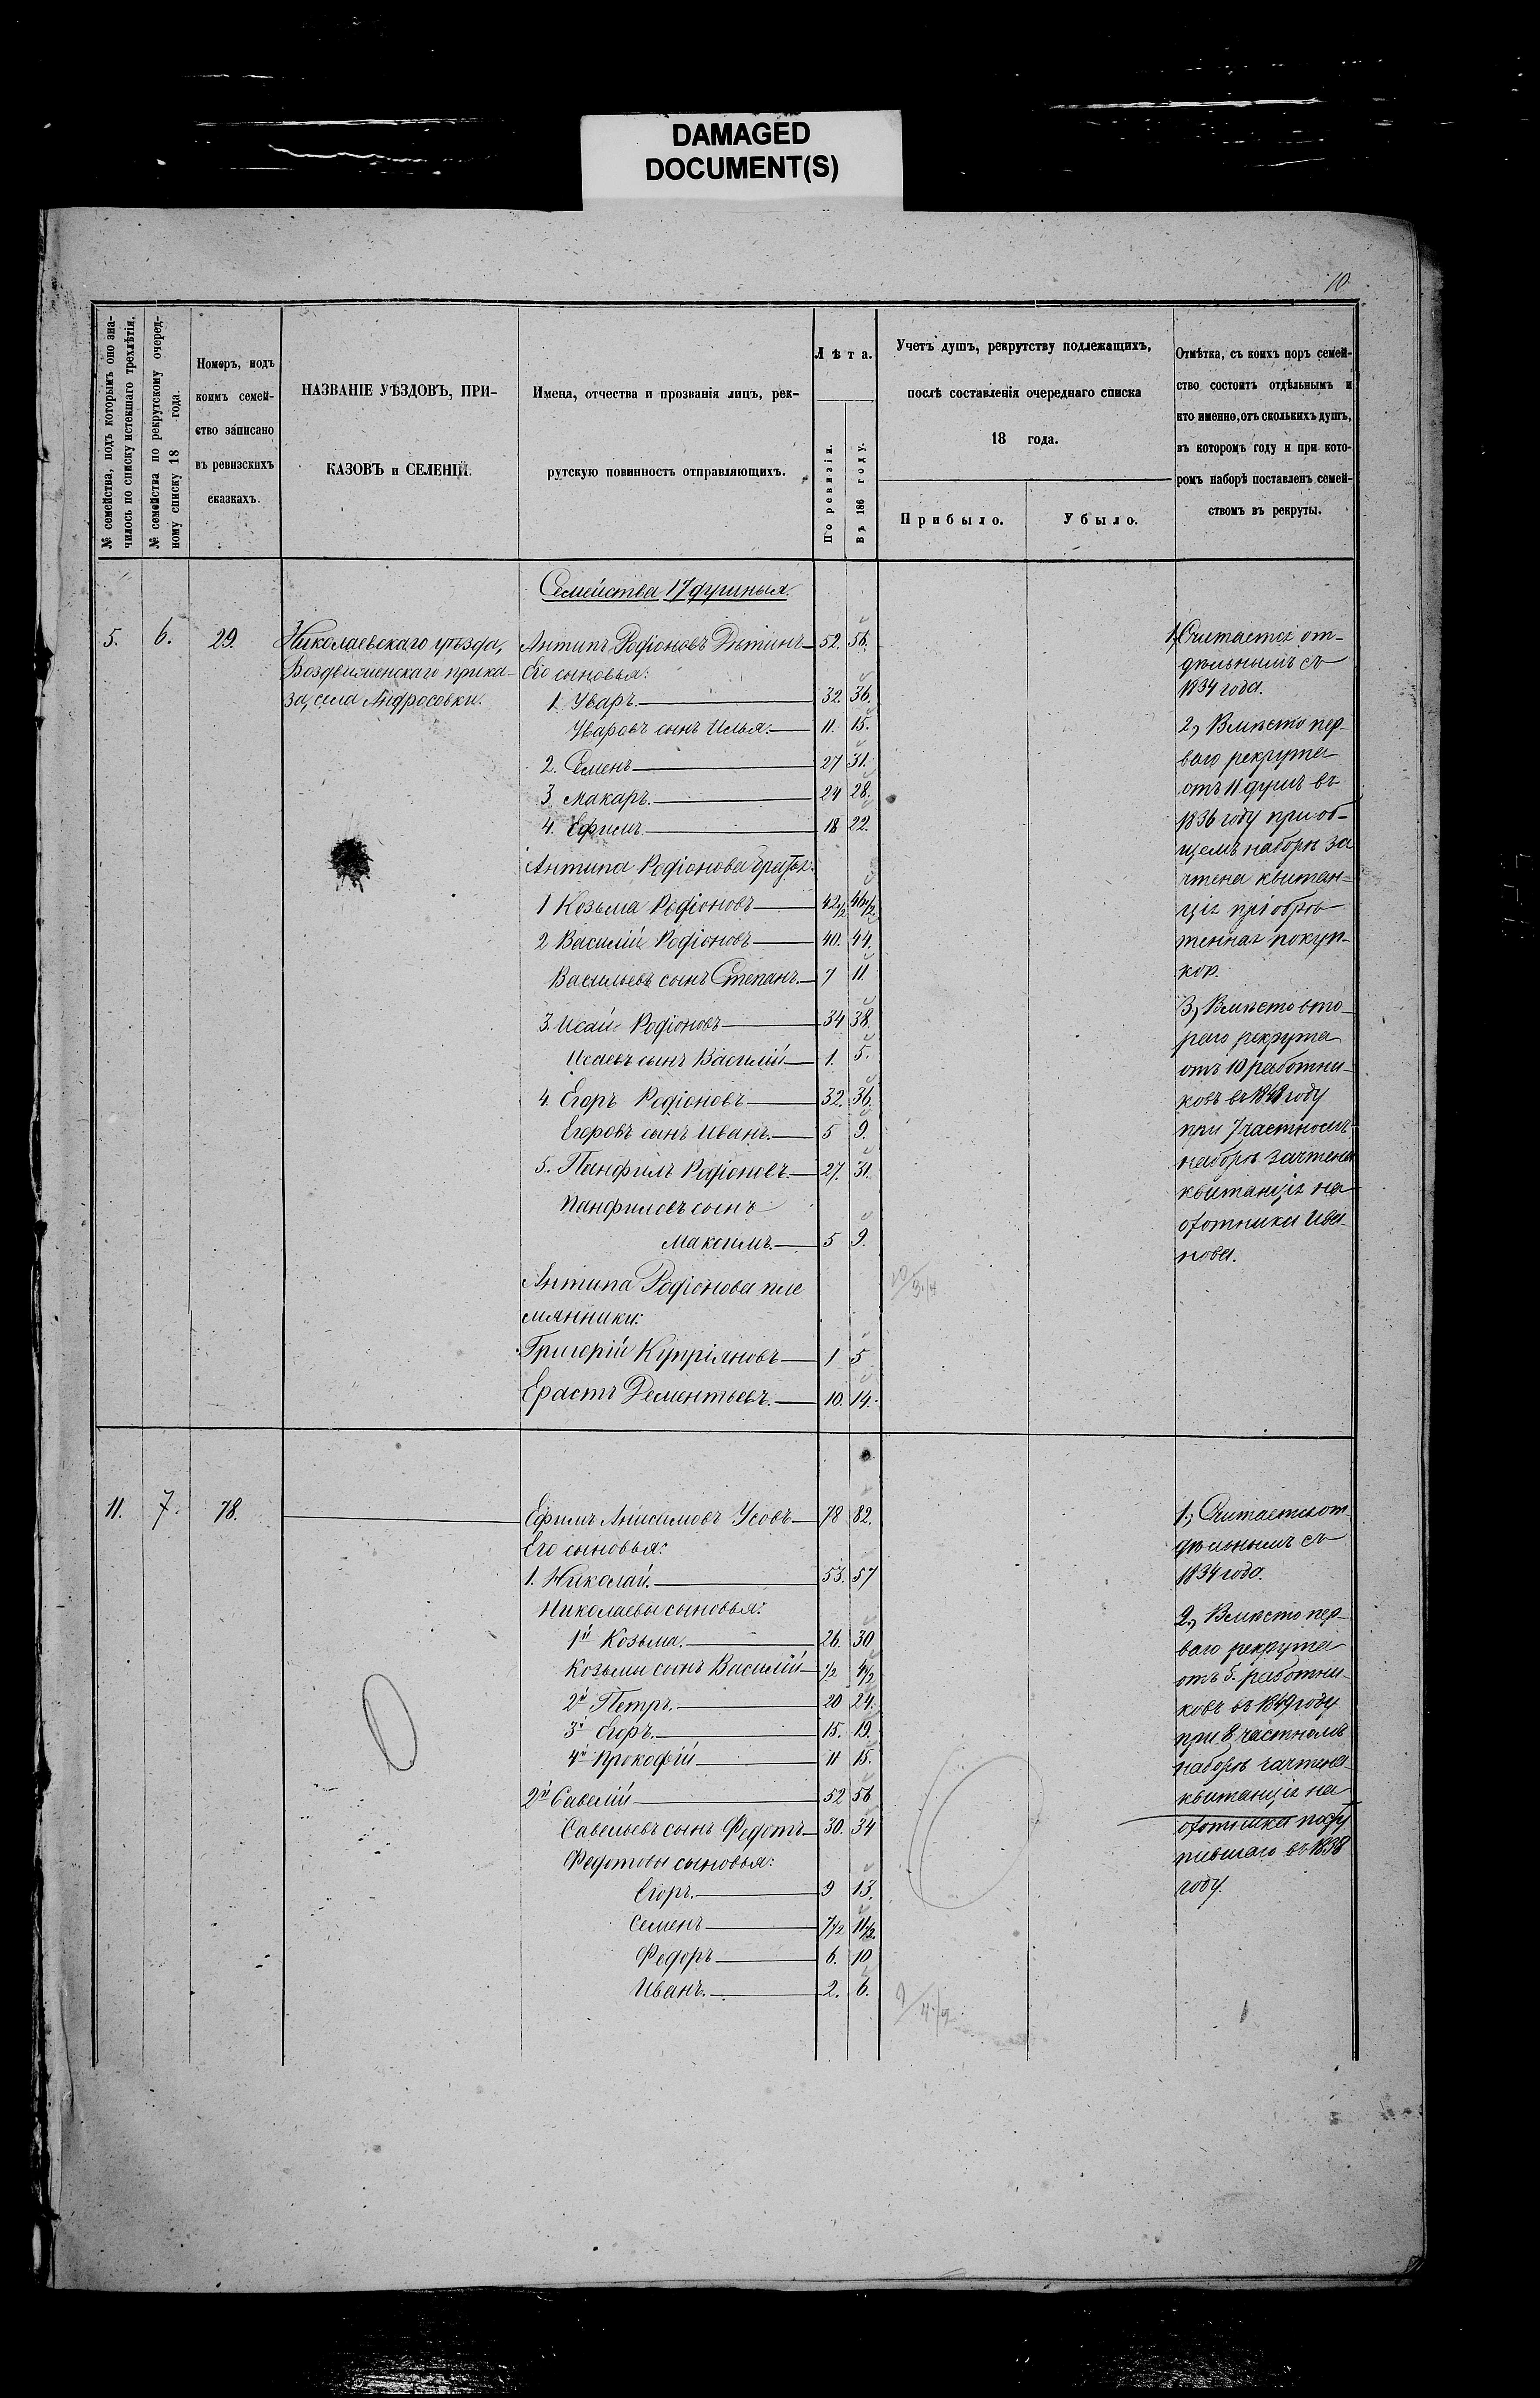 DAMAGED
DOCUMENT(S)
10
№ семейства, подъ которымъ оно зна-
чилось по списку истекшаго трехлѣтія.
№ семейства по рекрутскому очеред-
ному списку 18 года.
Номеръ, подъ
коимъ семей-
ство записано
въ ревизскихъ
сказкахъ.
НАЗВАНІЕ УѢЗДОВЪ, ПРИ-
КАЗОВЪ и СЕЛЕНІЙ.
Имена, отчества и прозванія лицъ, рек-
рутскую повинность отправляющихъ.
Лѣта.
По ревизіи.
Въ 186 году.
Учетъ душъ, рекрутству подлежащихъ,
послѣ составленія очереднаго списка
18 года.
Прибыло.
Убыло.
Отмѣтка, съ коихъ поръ семей-
ство состоитъ отдѣльнымъ и
кто именно, отъ сколькихъ душъ,
въ которомъ году и при кото-
ромъ наборѣ поставленъ семей-
ствомъ въ рекруты.
Семейства 17 душныя.
5. 6. 29.
Николаевскаго уѣзда,
Воздвиженскаго прика-
за, села Андросовки.
Антипъ Родіоновъ Дѣтинъ 52. 56.
Его сыновья:
1. Уваръ. 32. 36.
Уваровъ сынъ Илья. 11. 15.
2. Семенъ 27 31.
3. Макаръ. 24 28.
4. Ефимъ. 18 22.
Антипа Родіонова братья:
1 Козьма Родіоновъ 42½ 46½
2 Василій Родіоновъ 40. 44.
Васильевъ сынъ Степанъ. 7 11.
3. Исай Родіоновъ 34 38.
Исаевъ сынъ Василій 1. 5.
4. Егоръ Родіоновъ 32. 36.
Егоровъ сынъ Иванъ. 5 9.
5. Панфилъ Родіоновъ 27. 31.
Панфиловъ сынъ
Максимъ. 5 9.
Антипа Родіонова пле
мянники:
Григорій Купріяновъ 1 5
Ерастъ Дементьевъ. 10. 14.
1, Считается от-
дѣльнымъ съ
1834 года.
2, Вмѣсто пер-
ваго рекрута
отъ 11 душъ въ
1836 году при об-
щемъ наборѣ за
чтена квитан-
ція пріобрѣ-
тенная покуп-
кой.
3, Вмѣсто вто-
раго рекрута
отъ 10 работни-
ковъ въ 1848 году
при 7 частномъ
наборѣ зачтена
квитанція на
охотника Ива-
нова.
11. 7. 78.
Ефимъ Анисимовъ Усовъ 78 82.
Его сыновья:
1. Николай. 53. 57
Николаевы сыновья:
1й Козьма. 26. 30
Козьмы сынъ Василій ½ 4½
2й Петръ. 20 24.
3й Егоръ. 15. 19.
4й Прокофій 11 15.
2й Савелій 52 56
Савельевъ сынъ Федотъ 30. 34
Федотовы сыновья:
Егоръ. 9 13.
Семенъ 7½ 11½.
Федоръ 6. 10
Иванъ. 2. 6.
1, Считается от
дѣльнымъ съ
1834 года.
2, Вмѣсто пер-
ваго рекрута
отъ 5. работни-
ковъ въ 1849 году
при 8 частномъ
наборѣ зачтена
квитанція на
охотника посту
пившаго въ 1838
году.